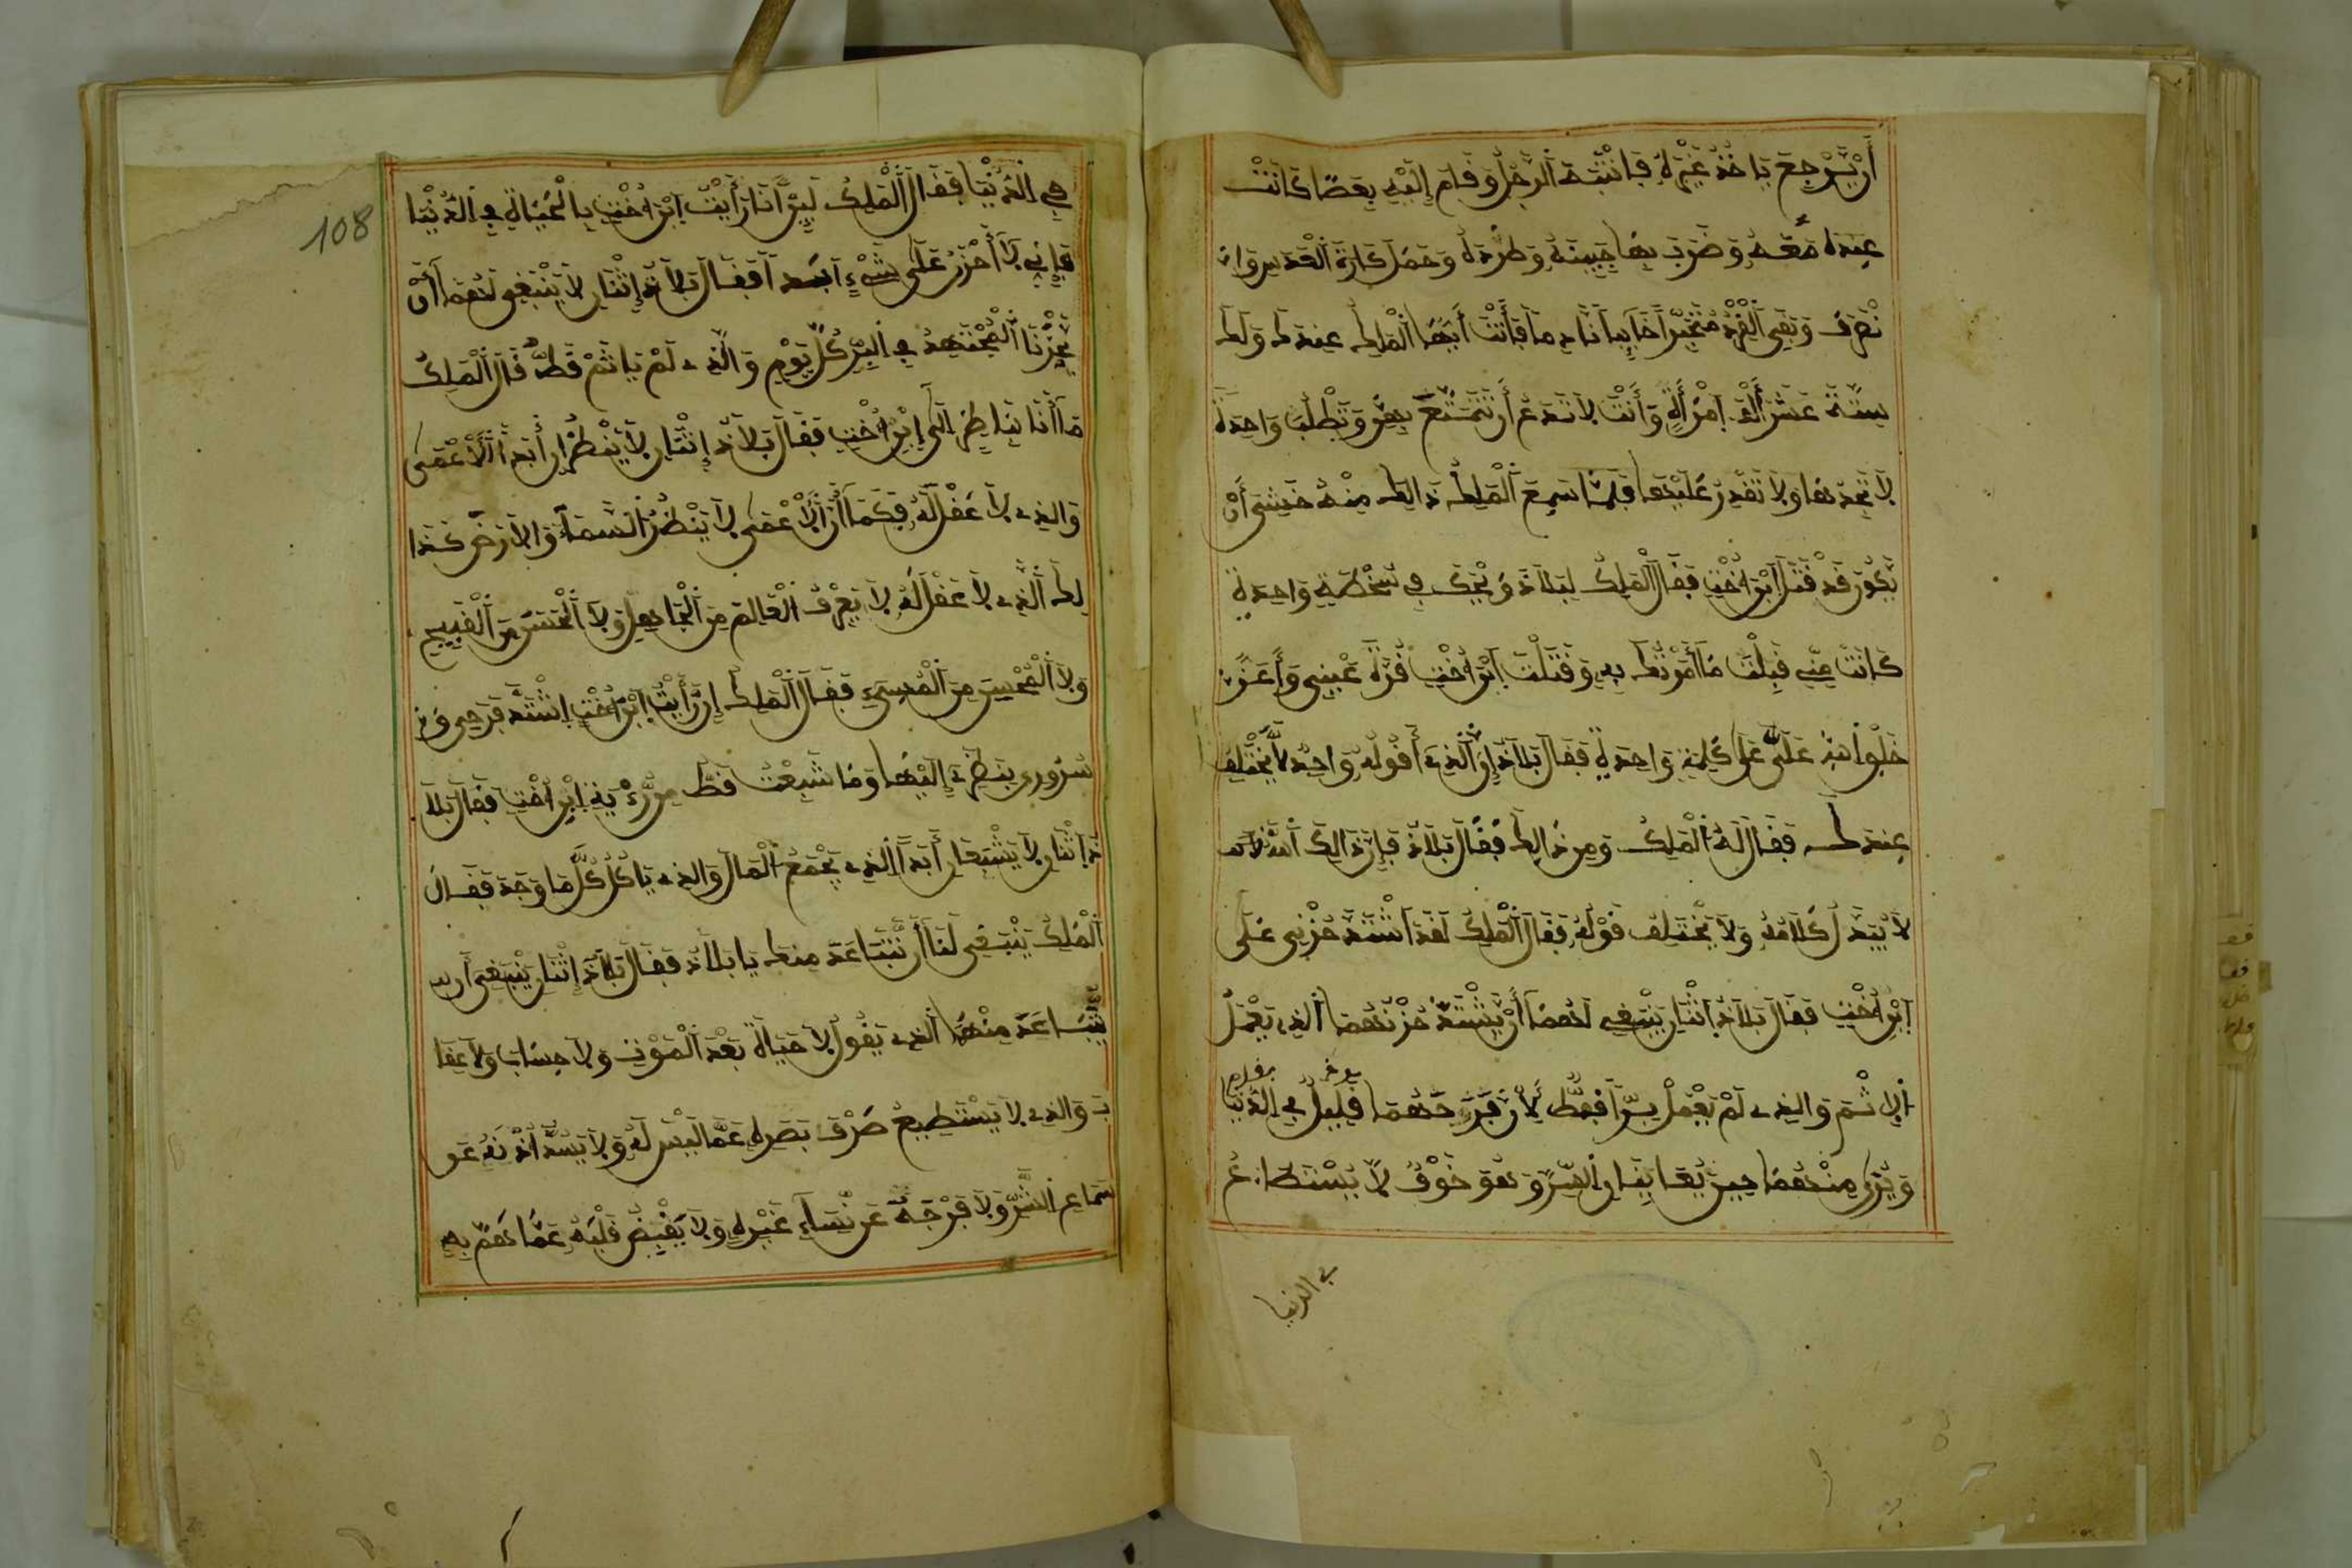 أَنْ يَّرْجِعَ يَاخُذُ غَيْرَهُ فَانْتَبَهَ الرَّجُلُ وَقَامَ إِلَيْهِ بِعَصًا كَانَتْ
عِنْدَهُ مَعَهُ وَضَرَبَ بِهَا جَبِينَهُ وَطَرَدَهُ وَحَمَلَ كَارَةَ الْعَدَسِ وَانْ
نْصَرَفَ وَبَقِيَ الْقِرْدُ مُتَحَيِّرًا خَائِبًا نَادِمًا فَأَنْتَ أَيُّهَا الْمَلِكُ عِنْدَكَ وَلَكَ
سِتَّةَ عَشَرَ أَلْفَ امْرَأَةٍ وَأَنْتَ لَا تَدَعُ أَنْ تَتَمَتَّعَ بِهِنَّ وَتَطْلُبَ وَاحِدَةً
لَا تَجِدُهَا وَلَا تَقْدِرُ عَلَيْهَا فَلَمَّا سَمِعَ الْمَلِكُ ذَالِكَ مِنْهُ خَشِيَ أَنْ
يَّكُونَ قَدْ قَتَلَ ابْرَاخْتِ فَقَالَ الْمَلِكُ لِبَلَاذَ وَيْحَكَ فِي سُخْطَةٍ وَاحِدَةٍ
كَانَتْ مِنِّي قَبِلْتَ مَا أَمَرْتُكَ بِهِ وَقَتَلْتَ ابْرَاخْتِ قُرَّةَ عَيْنِي وَأَعَزَّ
خَلْقِ اللهِ عَلَيَّ عَلَى كَلِمَةٍ وَاحِدَةٍ فَقَالَ بَلَاذُ إِنَّ الَّذِي أَقُولُهُ وَاحِدٌ لَا يَخْتَلِفُ
عِنْدَكَ فَقَالَ لَهُ الْمَلِكُ وَمِنْ ذَالِكَ فَقَالَ بَلَاذُ فَإِنَّ ذَالِكَ اللهُ الَّذِي
لَا يُبَدَّلُ كَلَامُهُ وَلَا يَخْتَلِفُ قَوْلُهُ فَقَالَ الْمَلِكُ لَقَدِ اشْتَدَّ حُزْنِي عَلَى
ابْرَاخْتِ فَقَالَ بَلَاذُ اثْنَانِ يَنْبَغِي لَهُمَا أَنْ يَشْتَدَّ حُزْنُهُمَا الَّذِي يَعْمَلُ
الْإِثْمَ وَالَّذِي لَمْ يَعْمَلْ بِرًّا قَطُّ لِأَنَّ فَرَحَهُمَا قَلِيلٌ فِي الدُّنْيَا
وَيُرَى مِنْهُمَا حِينَ يُعَايِنَانِ الشَّرَّ وَهُوَ خَوْفٌ لَا يُسْتَطَاعُ
في الدنيا
108
هِيَ الدُّنْيَا فَقَالَ الْمَلِكُ لَئِنْ أَنَا رَأَيْتُ ابْرَاخْتِ بِالْحَيَاةِ فِي الدُّنْيَا
فَإِنِّي لَا أَحْزَنُ عَلَى شَيْءٍ أَبَدًا فَقَالَ بَلَاذُ إِثْنَانِ لَا يَنْبَغِي لَهُمَا أَنْ
يَحْزَنَا الْمُجْتَهِدُ فِي الْبِرِّ كُلَّ يَوْمٍ وَالَّذِي لَمْ يَاثَمْ قَطُّ قَالَ الْمَلِكُ
مَا أَنَا بِنَاظِرٍ إِلَى ابْرَاخْتِ فَقَالَ بَلَاذُ إِثْنَانِ لَا يَنْظُرَانِ أَبَدًا الْأَعْمَى
وَالَّذِي لَا عَقْلَ لَهُ فَكَمَا أَنَّ الْأَعْمَى لَا يَنْظُرُ السَّمَاءَ وَالْأَرْضَ كَذَا
لِكَ الَّذِي لَا عَقْلَ لَهُ لَا يَعْرِفُ الْعَالِمَ مِنَ الْجَاهِلِ وَلَا الْحَسَنَ مِنَ الْقَبِيحِ
وَلَا الْمُحْسِنَ مِنَ الْمُسِيءِ فَقَالَ الْمَلِكُ إِنْ رَأَيْتُ ابْرَاخْتِ اشْتَدَّ فَرَحِي وَ
سُرُورِي بِنَظَرِي إِلَيْهَا وَمَا شَبِعْتُ قَطُّ مِنْ رُؤْيَةِ ابْرَاخْتِ فَقَالَ بَلَا
ذُ اثْنَانِ لَا يَشْبَعَانِ أَبَدًا الَّذِي يَجْمَعُ الْمَالَ وَالَّذِي يَاكُلُ كُلَّ مَا وَجَدَ فَقَالَ
الْمَلِكُ يَنْبَغِي لَنَا أَنْ نَّتَبَاعَدَ مِنْكَ يَا بَلَاذُ فَقَالَ بَلَاذُ إِثْنَانِ يَنْبَغِي أَنْ
يُّتَبَاعَدَ مِنْهُمَا الَّذِي يَقُولُ لَا حَيَاةَ بَعْدَ الْمَوْتِ وَلَا حِسَابَ وَلَا عِقَا
بَ وَالَّذِي لَا يَسْتَطِيعُ صَرْفَ بَصَرِهِ عَمَّا لَيْسَ لَهُ وَلَا يَسُدُّ أُذْنَهُ عَنْ
سَمَاعِ الشَّرِّ وَلَا فَرْجَهُ عَنْ نِسَاءِ غَيْرِهِ وَلَا يَقْبِضُ قَلْبَهُ عَمَّا هَمَّ بِهِ